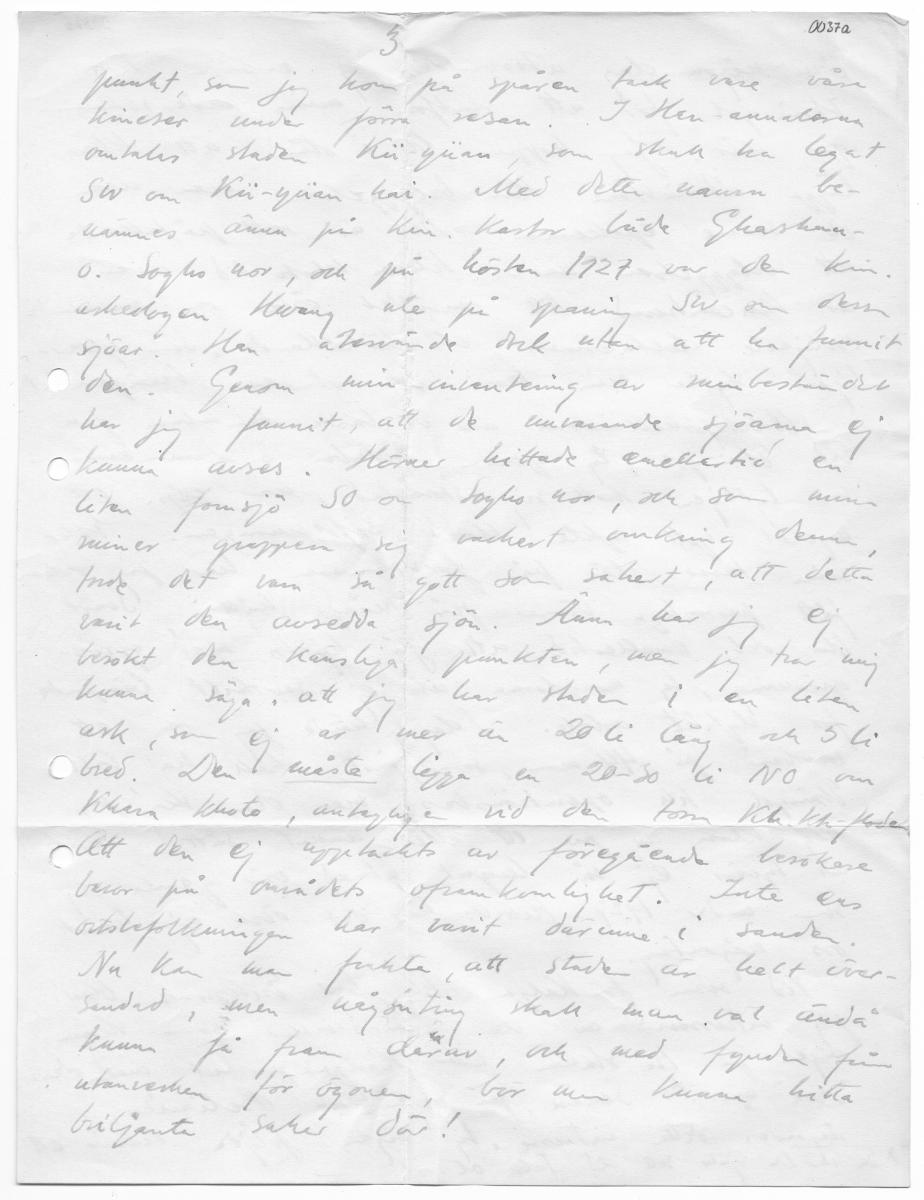 0037a
3
punkt, som jag kom på spåren tack vare våra
kineser under förra resan. I Han-annalerna
omtalas staden Kü-yüan, som skall ha legat
SW om Kü-yüan-hai. Med detta namn be-
nämnes ännu på kin. kartor både Ghashun-
o. Sogho nor, och på hösten 1927 var den kin.
arkeologen Hwang ute på spaning SW om dessa
sjöar. Han återvände dock utan att ha funnit
den. Genom min inventering av ruinbeståndet
har jag funnit, att de nuvarande sjöarna ej
kunna avses. Hörner hittade emellertid en
liten fornsjö SO om Sogho nor, och som mina
ruiner gruppera sig vackert omkring denna,
torde det vara så gott som säkert, att detta
varit den avsedda sjön. Ännu har jag ej
besökt den känsliga punkten, men jag tror mig
kunna säga att jag har staden i en liten
ask, som ej är mer än 20 li lång och 5 li
bred. Den måste ligga en 20-30 li NO om
Khara Khoto, antagligen vid den torra Kh.Kh-floden
Att den ej upptäckts av föregående besökare
beror på områdets oframkomlighet. Inte ens
ortsbefolkningen har varit därinne i sanden.
Nu kan man frukta, att staden är helt över-
sandad, men någonting skall man väl ändå
kunna få fram därav, och med fynden från
utanverken för ögonen, bör man kunna hitta
briljanta saker där!